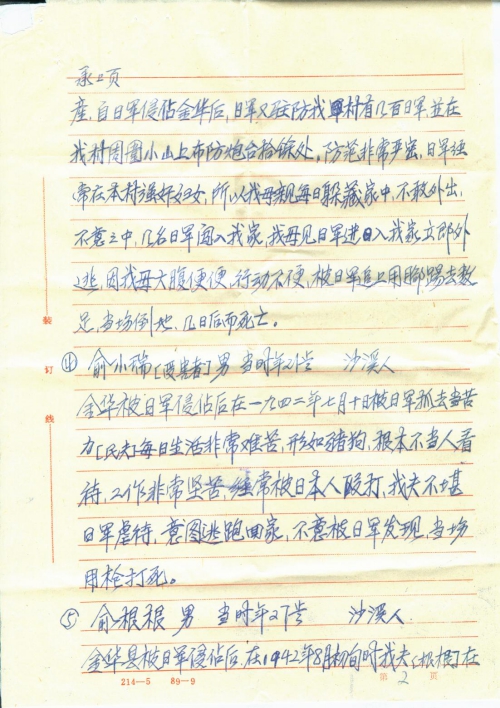 承上页
产，自日军侵佔金华后，日军又驻防我村有几百日军，並在
我村周围小山上布防炮台拾馀处，防范非常严密，日军经
常在本村强奸妇女，所以我母亲每日躲藏家中，不敢外出，
不意之中，几名日军闯入我家，我母见日军进入我家立即外
逃，因我母大腹便便，行动不便，被日军追上用脚踢去数
足，当场倒地，几日后而死亡。
④ 俞小瑞［受害者］男 当时年21岁 沙溪人
金华被日军侵佔后在一九四二年七月十日被日军抓去当苦
力［民夫］每日生活非常难苦，形如豬狗，根本不当人看
待，工作非常坚苦，经常被日本人殴打，我夫不堪
日军虐待，意图逃跑回家，不意被日军发现，当场
用枪打死。
⑤ 俞根根 男 当时年27岁 沙溪人
金华县被日军侵佔后，在1942年8月初旬时我夫［根根］在
装
订
线
214—5 89—9
第 2 页